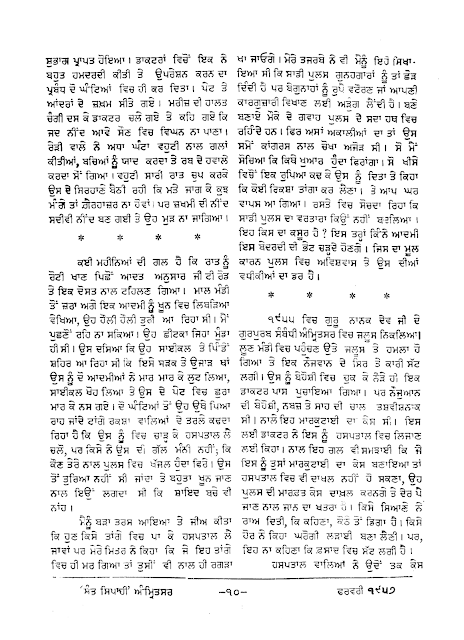 ਸੁਭਾਗ ਪ੍ਰਾਪਤ ਹੋਇਆ। ਡਾਕਟਰਾਂ ਵਿਚੋਂ ਇਕ ਨੇ
ਬਹੁਤ ਹਮਦਰਦੀ ਕੀਤੀ ਤੇ ਉਪਰੇਸ਼ਨ ਕਰਨ ਦਾ
ਪ੍ਰਬੰਧ ਦੋ ਘੰਟਿਆਂ ਵਿਚ ਹੀ ਕਰ ਦਿਤਾ। ਪੇਟ ਤੇ
ਆਂਦਰਾਂ ਦੇ ਜ਼ਖ਼ਮ ਸੀਤੇ ਗਏ। ਮਰੀਜ਼ ਦੀ ਹਾਲਤ
ਚੰਗੀ ਦਸ ਕੇ ਡਾਕਟਰ ਚਲੇ ਗਏ ਤੇ ਕਹਿ ਗਏ ਕਿ
ਜਦ ਨੀਂਦ ਆਵੇ ਸੌਣ ਵਿਚ ਵਿਘਨ ਨਾ ਪਾਣਾ।
ਰੇੜੀ ਵਾਲੇ ਨੇ ਅਧਾ ਘੰਟਾ ਵਹੁਟੀ ਨਾਲ ਗਲਾਂ
ਕੀਤੀਆਂ, ਬਚਿਆਂ ਨੂੰ ਯਾਦ ਕਰਦਾ ਤੇ ਰਬ ਦੇ ਹਵਾਲੇ
ਕਰਦਾ ਸੌਂ ਗਿਆ। ਵਹੁਟੀ ਸਾਰੀ ਰਾਤ ਚੁਪ ਕਰਕੇ
ਉਸ ਦੇ ਸਿਰਹਾਣੇ ਬੈਠੀ ਰਹੀ ਕਿ ਮਤੇਂ ਜਾਗ ਕੇ ਕੁਝ
ਮੰਗੇ ਤਾਂ ਗ਼ੈਰਹਾਜ਼ਰ ਨਾ ਹੋਵਾਂ। ਪਰ ਜ਼ਖਮੀ ਦੀ ਨੀਂਦ
ਸਦੀਵੀ ਨੀਂਦ ਬਣ ਗਈ ਤੇ ਉਹ ਮੁੜ ਨਾ ਜਾਗਿਆ।
* * * *
ਕਈ ਮਹੀਨਿਆਂ ਦੀ ਗਲ ਹੈ ਕਿ ਰਾਤ ਨੂੰ
ਰੋਟੀ ਖਾਣ ਪਿਛੋਂ ਆਦਤ ਅਨੁਸਾਰ ਜੀ ਟੀ ਰੋਡ
ਤੇ ਇਕ ਦੋਸਤ ਨਾਲ ਟਹਿਲਣ ਗਿਆ। ਮਾਲ ਮੰਡੀ
ਤੋਂ ਜ਼ਰਾ ਅਗੇ ਇਕ ਆਦਮੀ ਨੂੰ ਖ਼ੂਨ ਵਿਚ ਲਿਬੜਿਆ
ਵੇਖਿਆ, ਉਹ ਹੌਲੀ ਹੌਲੀ ਤੁਰੀ ਆ ਰਿਹਾ ਸੀ। ਮੈਂ
ਪੁਛਣੋਂ ਰਹਿ ਨਾ ਸਕਿਆ। ਉਹ ਛੀਟਕਾ ਜਿਹਾ ਮੁੰਡਾ
ਹੀ ਸੀ। ਉਸ ਦਸਿਆ ਕਿ ਉਹ ਸਾਈਕਲ ਤੇ ਪਿੰਡੋਂ
ਸ਼ਹਿਰ ਆ ਰਿਹਾ ਸੀ ਕਿ ਇਸੇ ਸੜਕ ਤੇ ਉਜਾੜ ਥਾਂ
ਉਸ ਨੂੰ ਦੋ ਆਦਮੀਆਂ ਨੇ ਮਾਰ ਮਾਰ ਕੇ ਲੁਟ ਲਿਆ,
ਸਾਈਕਲ ਖੋਹ ਲਿਆ ਤੇ ਉਸ ਦੇ ਪੇਟ ਵਿਚ ਛੁਰਾ
ਮਾਰ ਕੇ ਨਸ ਗਏ। ਦੋ ਘੰਟਿਆਂ ਤੋਂ ਉਹ ਉਥੇ ਪਿਆ
ਰਾਹ ਜਾਂਦੇ ਟਾਂਗੇ ਰਕਸ਼ਾ ਵਾਲਿਆਂ ਦੇ ਤਰਲੇ ਕਢਦਾ
ਰਿਹਾ ਹੈ ਕਿ ਉਸ ਨੂੰ ਵਿਚ ਚਾੜ੍ਹ ਕੇ ਹਸਪਤਾਲ ਲੈ
ਚਲੋ, ਪਰ ਕਿਸੇ ਨੇ ਉਸ ਦੀ ਗੱਲ ਮੰਨੀ ਨਹੀਂ, ਕਿ
ਕੌਣ ਤੇਰੇ ਨਾਲ ਪੁਲਸ ਵਿਚ ਖੱਜਲ ਹੁੰਦਾ ਫਿਰੇ। ਉਸ
ਤੋਂ ਤੁਰਿਆ ਨਹੀਂ ਸੀ ਜਾਂਦਾ ਤੇ ਬਹੁਤਾ ਖ਼ੂਨ ਜਾਣ
ਨਾਲ ਇਉਂ ਲਗਦਾ ਸੀ ਕਿ ਸ਼ਾਇਦ ਬਚੇ ਵੀ
ਨਾਂਹ।
ਮੈਨੂੰ ਬੜਾ ਤਰਸ ਆਇਆ ਤੇ ਜੀਅ ਕੀਤਾ
ਕਿ ਹੁਣ ਕਿਸੇ ਤਾਂਗੇ ਵਿਚ ਪਾ ਕੇ ਹਸਪਤਾਲ ਲੈ
ਜਾਵਾਂ ਪਰ ਮੇਰੇ ਮਿਤਰ ਨੇ ਕਿਹਾ ਕਿ ਜੇ ਇਹ ਤਾਂਗੇ
ਵਿਚ ਹੀ ਮਰ ਗਿਆ ਤਾਂ ਤੁਸੀਂ ਵੀ ਨਾਲ ਹੀ ਰਗੜਾ
ਖਾ ਜਾਓਗੇ। ਮੇਰੇ ਤਜਰਬੇ ਨੇ ਵੀ ਮੈਨੂੰ ਇਹੋ ਸਿਖਾ-
ਇਆ ਸੀ ਕਿ ਸਾਡੀ ਪੁਲਸ ਗੁਨਹਗਾਰਾਂ ਨੂੰ ਤਾਂ ਛੋੜ
ਦਿੰਦੀ ਹੈ ਪਰ ਬੇਗੁਨਾਹਾਂ ਨੂੰ ਰੁਪੈ ਵਟੋਰਣ ਜਾਂ ਆਪਣੀ
ਕਾਰਗੁਜ਼ਾਰੀ ਵਿਖਾਣ ਲਈ ਅੜੁੰਗ ਲੈਂਦੀ ਹੈ। ਬਣੇ
ਬਣਾਏ ਮੌਕੇ ਦੇ ਗਵਾਹ ਪੁਲਸ ਦੇ ਸਦਾ ਹਥ ਵਿਚ
ਰਹਿੰਦੇ ਹਨ। ਫਿਰ ਅਸਾਂ ਅਕਾਲੀਆਂ ਦਾ ਤਾਂ ਉਸ
ਸਮੇਂ ਕਾਂਗਰਸ ਨਾਲ ਚੋਖਾ ਅਜੋੜ ਸੀ। ਸੋ ਮੈਂ
ਸੋਚਿਆ ਕਿ ਕਿਥੇ ਖੁਆਰ ਹੁੰਦਾ ਫਿਰਾਂਗਾ। ਸੋ ਖੀਸੇ
ਵਿਚੋਂ ਇਕ ਰੁਪਿਆ ਕਢ ਕੇ ਉਸ ਨੂੰ ਦਿਤਾ ਤੇ ਕਿਹਾ
ਕਿ ਕੋਈ ਰਿਕਸ਼ਾ ਤਾਂਗਾ ਕਰ ਲੈਣਾ। ਤੇ ਆਪ ਘਰ
ਵਾਪਸ ਆ ਗਿਆ। ਰਸਤੇ ਵਿਚ ਸੋਚਦਾ ਰਿਹਾ ਕਿ
ਸਾਡੀ ਪੁਲਸ ਦਾ ਵਰਤਾਰਾ ਕਿਉਂ ਨਹੀਂ ਬਦਲਿਆ।
ਇਹ ਕਿਸ ਦਾ ਕਸੂਰ ਹੈ? ਇਸ ਤਰ੍ਹਾਂ ਕਿੰਨੇ ਆਦਮੀ
ਇਸ ਬੇਦਰਦੀ ਦੀ ਭੇਟ ਚੜ੍ਹਦੇ ਹੋਣਗੇ। ਜਿਸ ਦਾ ਮੂਲ
ਕਾਰਨ ਪੁਲਸ ਵਿਚ ਅਵਿਸ਼ਵਾਸ ਤੇ ਉਸ ਦੀਆਂ
ਵਧੀਕੀਆਂ ਦਾ ਡਰ ਹੈ।
* * * *
੧੯੫੫ ਵਿਚ ਗੁਰੂ ਨਾਨਕ ਦੇਵ ਜੀ ਦੇ
ਗੁਰਪੁਰਬ ਸੰਬੰਧੀ ਅੰਮ੍ਰਿਤਸਰ ਵਿਚ ਜਲੂਸ ਨਿਕਲਿਆ।
ਲੂਣ ਮੰਡੀ ਵਿਚ ਪਹੁੰਚਣ ਉਤੇ ਜਲੂਸ ਤੇ ਹਮਲਾ ਹੋ
ਗਿਆ ਤੇ ਇਕ ਨੌਜਵਾਨ ਦੇ ਸਿਰ ਤੇ ਕਾਰੀ ਸੱਟ
ਲਗੀ। ਉਸ ਨੂੰ ਬੇਹੋਸ਼ੀ ਵਿਚ ਚੁਕ ਕੇ ਨੇੜੇ ਹੀ ਇਕ
ਡਾਕਟਰ ਪਾਸ ਪੁਚਾਇਆ ਗਿਆ। ਪਰ ਨੌਜੁਆਨ
ਦੀ ਬੇਹੋਸ਼ੀ, ਨਬਜ਼ ਤੇ ਸਾਹ ਦੀ ਚਾਲ ਤਸ਼ਵੀਸ਼ਨਾਕ
ਸੀ। ਨਾਲੇ ਇਹ ਮਾਰਕੁਟਾਈ ਦਾ ਕੇਸ ਸੀ। ਇਸ
ਲਈ ਡਾਕਟਰ ਨੇ ਇਸ ਨੂੰ ਹਸਪਤਾਲ ਵਿਚ ਲਿਜਾਣ
ਲਈ ਕਿਹਾ। ਨਾਲ ਇਹ ਗਲ ਵੀ ਸਮਝਾਈ ਕਿ ਜੇ
ਇਸ ਨੂੰ ਤੁਸਾਂ ਮਾਰਕੁਟਾਈ ਦਾ ਕੇਸ ਬਣਾਇਆ ਤਾਂ
ਹਸਪਤਾਲ ਵਿਚ ਵੀ ਦਾਖਲ ਨਹੀਂ ਹੋ ਸਕਣਾ, ਉਹ
ਪੁਲਸ ਦੀ ਮਾਰਫ਼ਤ ਕੇਸ ਦਾਖ਼ਲ ਕਰਨਗੇ ਤੇ ਦੇਰ ਪੈ
ਜਾਣ ਨਾਲ ਜਾਨ ਦਾ ਖਤਰਾ ਹੈ। ਕਿਸੇ ਸਿਆਣੇ ਨੇ
ਰਾਅ ਦਿਤੀ, ਕਿ ਕਹਿਣਾ, ਕੋਠੇ ਤੋਂ ਡਿਗਾ ਹੈ। ਕਿਸੇ
ਹੋਰ ਨੇ ਕਿਹਾ ਘਰੋਗੀ ਲੜਾਈ ਬਣਾ ਲੈਣੀ। ਪਰ,
ਇਹ ਨਾ ਕਹਿਣਾ ਕਿ ਫ਼ਸਾਦ ਵਿਚ ਸੱਟ ਲਗੀ ਹੈ।
ਹਸਪਤਾਲ ਵਾਲਿਆਂ ਨੇ ਉਦੋਂ ਤਕ ਕੇਸ
'ਸੰਤ ਸਿਪਾਹੀ' ਅੰਮ੍ਰਿਤਸਰ
-੧੦-
ਫਰਵਰੀ ੧੯੫੭